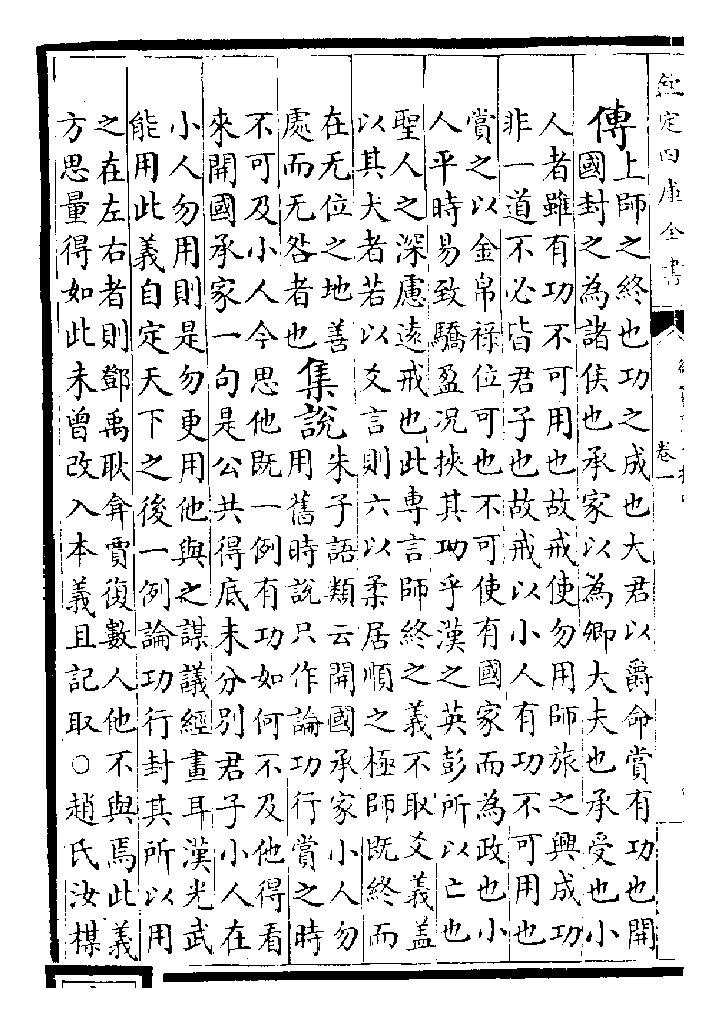 欽定四庫全書
卷一
傳
上師之終也功之成也大君以爵命賞有功也開
國封之為諸侯也承家以為卿大夫也承受也小
人者雖有功不可用也故戒使勿用師旅之興成功
非一道不必皆君子也故戒以小人有功不可用也
賞之以金帛祿位可也不可使有國家而為政也小
人平時易致驕盈况挾其功乎漢之英彭所以亡也
聖人之深慮遠戒也此専言師終之義不取爻義盖
以其大者若以爻言則六以柔居順之極師既終而
在无位之地善
處而无咎者也
集說
朱子語類云開國承家小人勿
用舊時說只作論功行賞之時
不可及小人今思他既一例有功如何不及他得看
來開國承家一句是公共得底未分別君子小人在
小人勿用則是勿更用他與之謀議經畫耳漢光武
能用此義自定天下之後一例論功行封其所以用
之在左右者則鄧禹耿弇賈復數人他不與焉此義
方思量得如此未曾改入本義且記取○趙氏汝楳